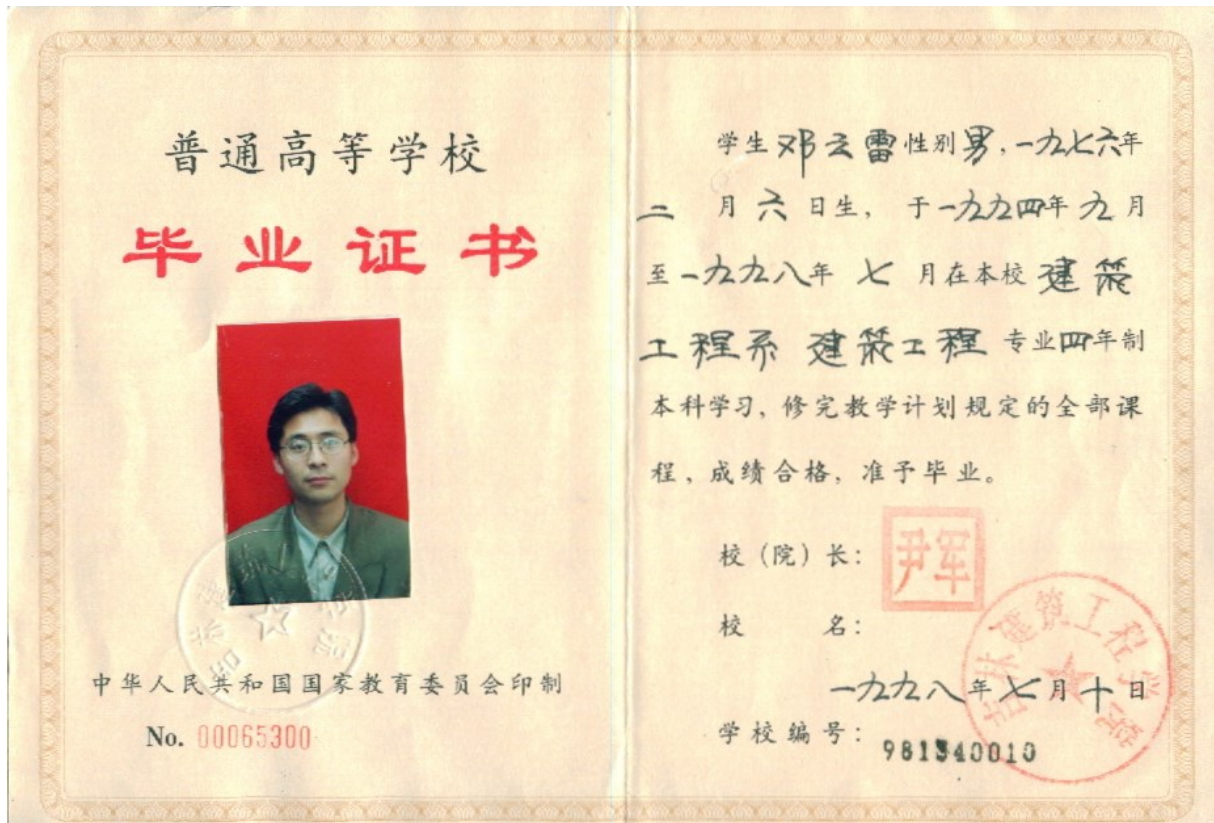 普通高等学校
毕业证书
中华人民共和国国家教育委员会印制
No. 00065300
学生 邓云雷 性别 男，一九七六年
二 月 六 日生， 于一九九四年 九 月
至一九九八年 七 月在本校 建筑
工程系 建筑工程 专业四年制
本科学习，修完教学计划规定的全部课
程，成绩合格，准予毕业。
校（院）长：
尹军
校 名：
吉林建筑工程学院
一九九八年七月十日
学校编号：
981340010